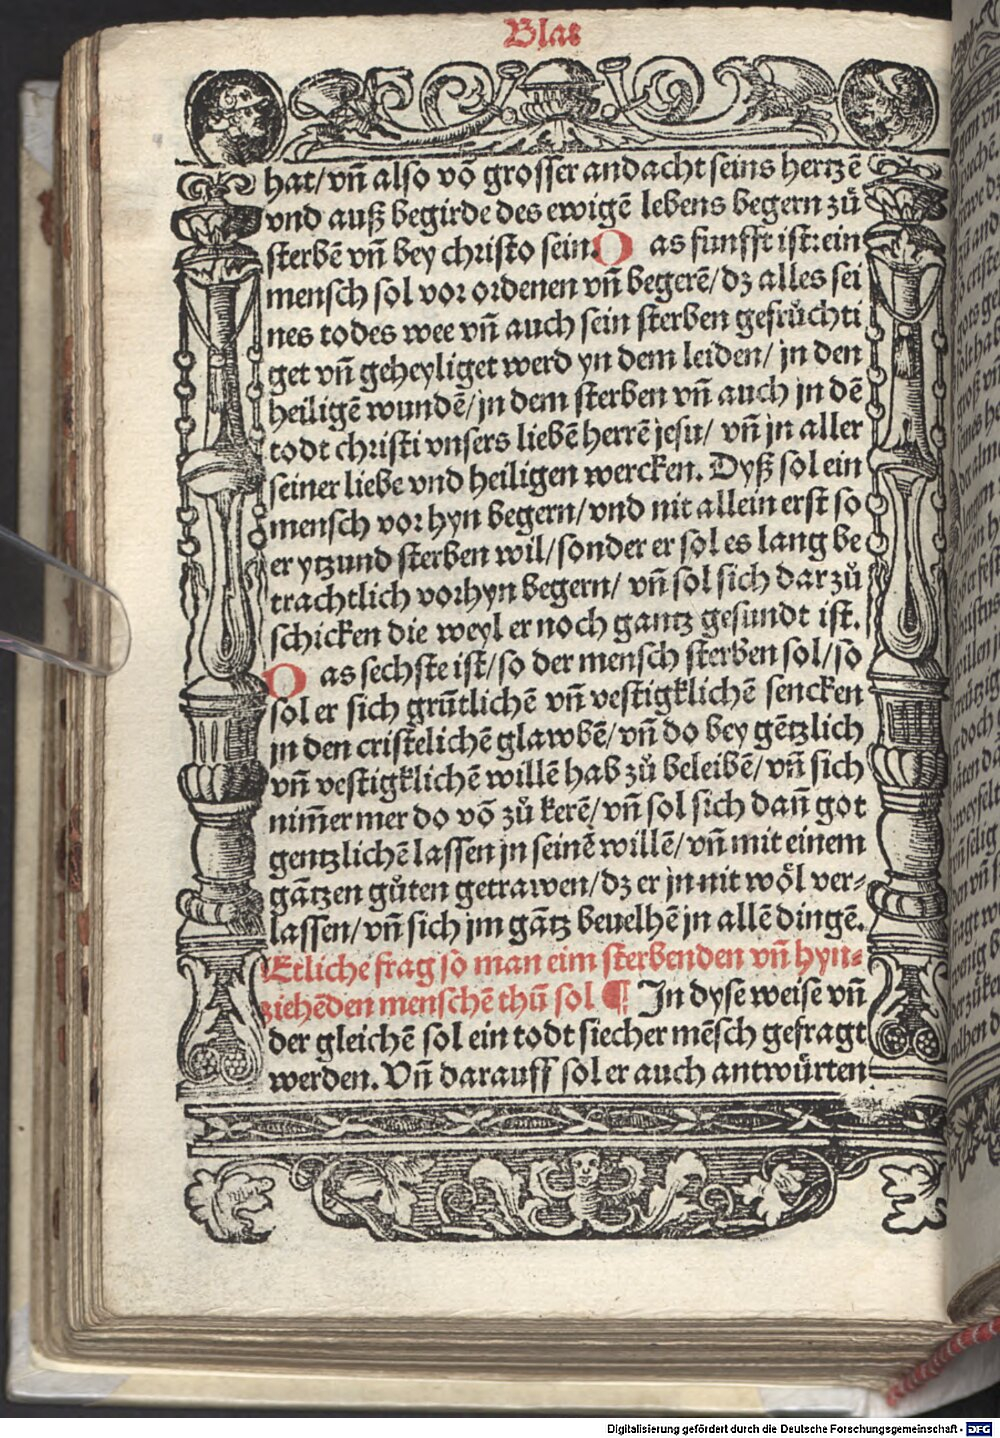 Blat
hat/ vñ also võ grosser andacht seins hertzẽ
vnd auß begirde des ewigẽ lebens begern zů
sterbẽ vñ bey christo sein. Das funfft ist: ein
mensch sol vor ordenen vñ begerẽ/ dz alles sei
nes todes wee vñ auch sein sterben gefrůchti
get vñ geheyliget werd yn dem leiden/ jn den
heiligẽ wundẽ/ jn dem sterben vñ auch jn dẽ
todt christi vnsers liebẽ herrẽ jesu/ vñ jn aller
seiner liebe vnd heiligen wercken. Dyß sol ein
mensch vor hyn begern/ vnd nit allein erst so
er ytzund sterben wil/ sonder er sol es lang be
trachtlich vorhyn begern/ vñ sol sich dar zů
schicken die weyl er noch gantz gesundt ist.
Das sechste ist/ so der mensch sterben sol/ so
sol er sich grũtlichẽ vñ vestigklichẽ sencken
jn den cristelichẽ glawbẽ/ vñ do bey gẽtzlich
vñ vestigklichẽ willẽ hab zů beleibẽ/ vñ sich
nim̃er mer do võ zů kerẽ/ vñ sol sich dañ got
gentzlichẽ lassen jn seinẽ willẽ/ vñ mit einem
gãtzen gůten getrawen/ dz er jn nit wöl ver⸗
lassen/ vñ sich jm gãtz beuelhẽ jn allẽ dingẽ.
Etliche frag so man eim sterbenden vñ hyn⸗
ziehẽden menschẽ thũ sol ¶ In dyse weise vñ
der gleichẽ sol ein todt siecher mẽsch gefragt
werden. Vñ darauff sol er auch antwürten
Digitalisierung gefördert durch die Deutsche Forschungsgemeinschaft - DFG